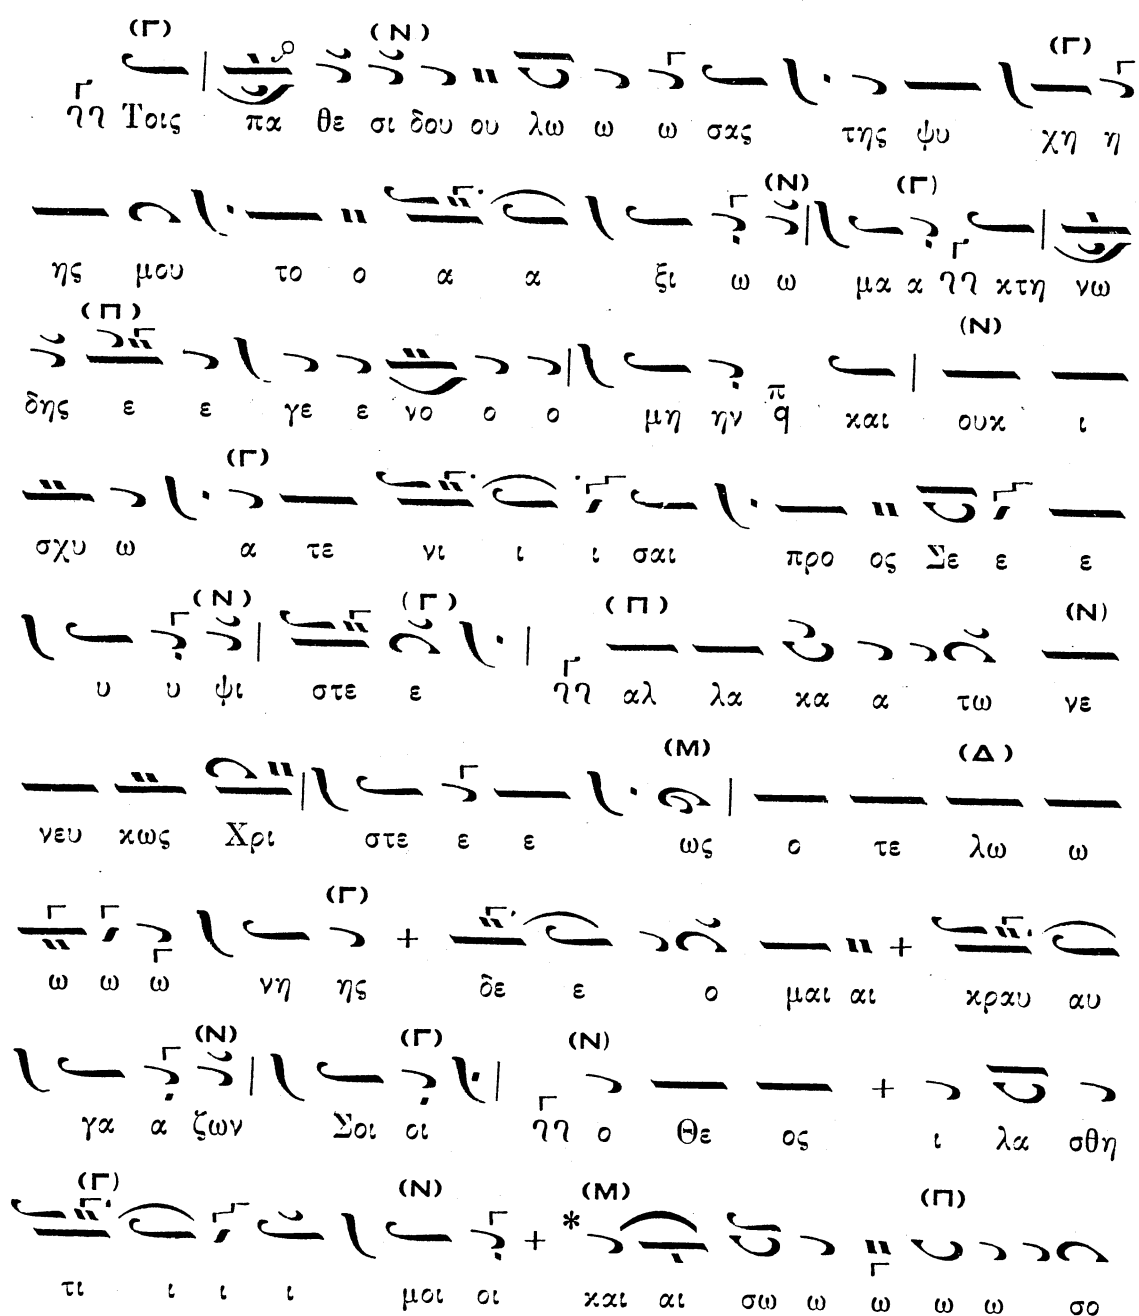 (Γ) (Ν) (Γ)
Τοις πα θε σι δου ου λω ω ω σας της ψυ χη η
(Ν) (Γ)
ης μου το ο α α ξι ω ω μα α κτη νω
(Π) (Ν)
δης ε ε γε ε νο ο ο μη ην π q και ουκ ι
(Γ)
σχυ ω α τε νι ι ι σαι προ ος Σε ε ε
(Ν) (Γ) (Π) (Ν)
υ υ ψι στε ε αλ λα κα α τω νε
(Μ) (Δ)
νευ κως Χρι στε ε ε ως ο τε λω ω
(Γ)
ω ω ω νη ης + δε ε ο μαι αι + κραυ αυ
(Ν) (Γ) (Ν)
γα α ζων Σοι οι ο Θε ος + ι λα σθη
(Γ) (Ν) (Μ) (Π)
τι ι ι ι μοι οι + * και αι σω ω ω ω ω σο